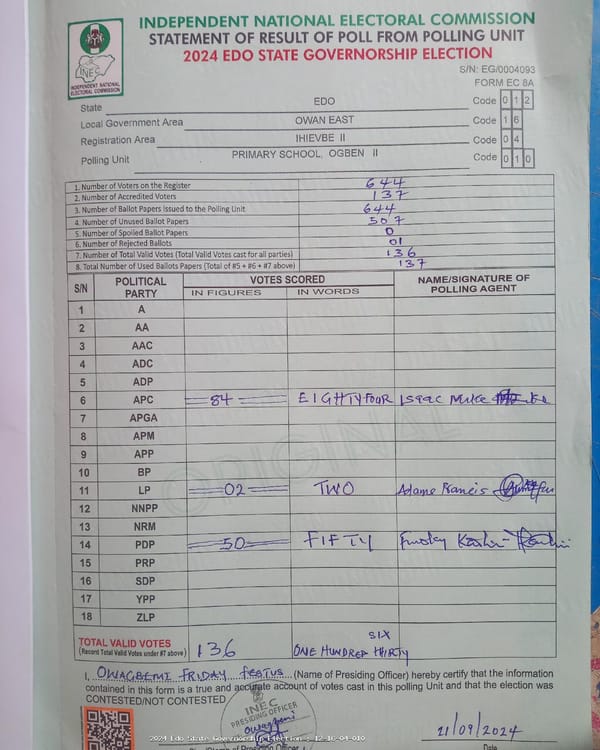 INDEPENDENT NATIONAL ELECTORAL COMMISSION
STATEMENT OF RESULT OF POLL FROM POLLING UNIT
2024 EDO STATE GOVERNORSHIP ELECTION
INEC
INDEPENDENT NATIONAL
ELECTORAL COMMISSION
S/N: EG/0004093
FORM EC 8A
State EDO Code 0 1 2
Local Government Area OWAN EAST Code 1 6
Registration Area IHIEVBE II Code 0 4
Polling Unit PRIMARY SCHOOL, OGBEN II Code 0 1 0
1. Number of Voters on the Register 644
2. Number of Accredited Voters 137
3. Number of Ballot Papers Issued to the Polling Unit 644
4. Number of Unused Ballot Papers 507
5. Number of Spoiled Ballot Papers 0
6. Number of Rejected Ballots 01
7. Number of Total Valid Votes (Total Valid Votes cast for all parties) 136
8. Total Number of Used Ballots Papers (Total of #5 + #6 + #7 above) 137
S/N POLITICAL PARTY VOTES SCORED NAME/SIGNATURE OF POLLING AGENT
IN FIGURES IN WORDS
1 A
2 AA
3 AAC
4 ADC
5 ADP
6 APC 84 EIGHTYFOUR Isaac
7 APGA
8 APM
9 APP
10 BP
11 LP 02 TWO Adame Francis
12 NNPP
13 NRM
14 PDP 50 FIFTY
15 PRP
16 SDP
17 YPP
18 ZLP
ORIGINAL
TOTAL VALID VOTES 136 ONE HUNDRED THIRTY SIX
(Record Total Valid Votes under #7 above)
I, OWAGBEMI FRIDAY FESTUS (Name of Presiding Officer) hereby certify that the information
contained in this form is a true and accurate account of votes cast in this polling Unit and that the election was
CONTESTED/NOT CONTESTED
INEC
PRESIDING OFFICER
21/09/2024
2024 Edo State Governorship Election : 12-16-04-010
Date